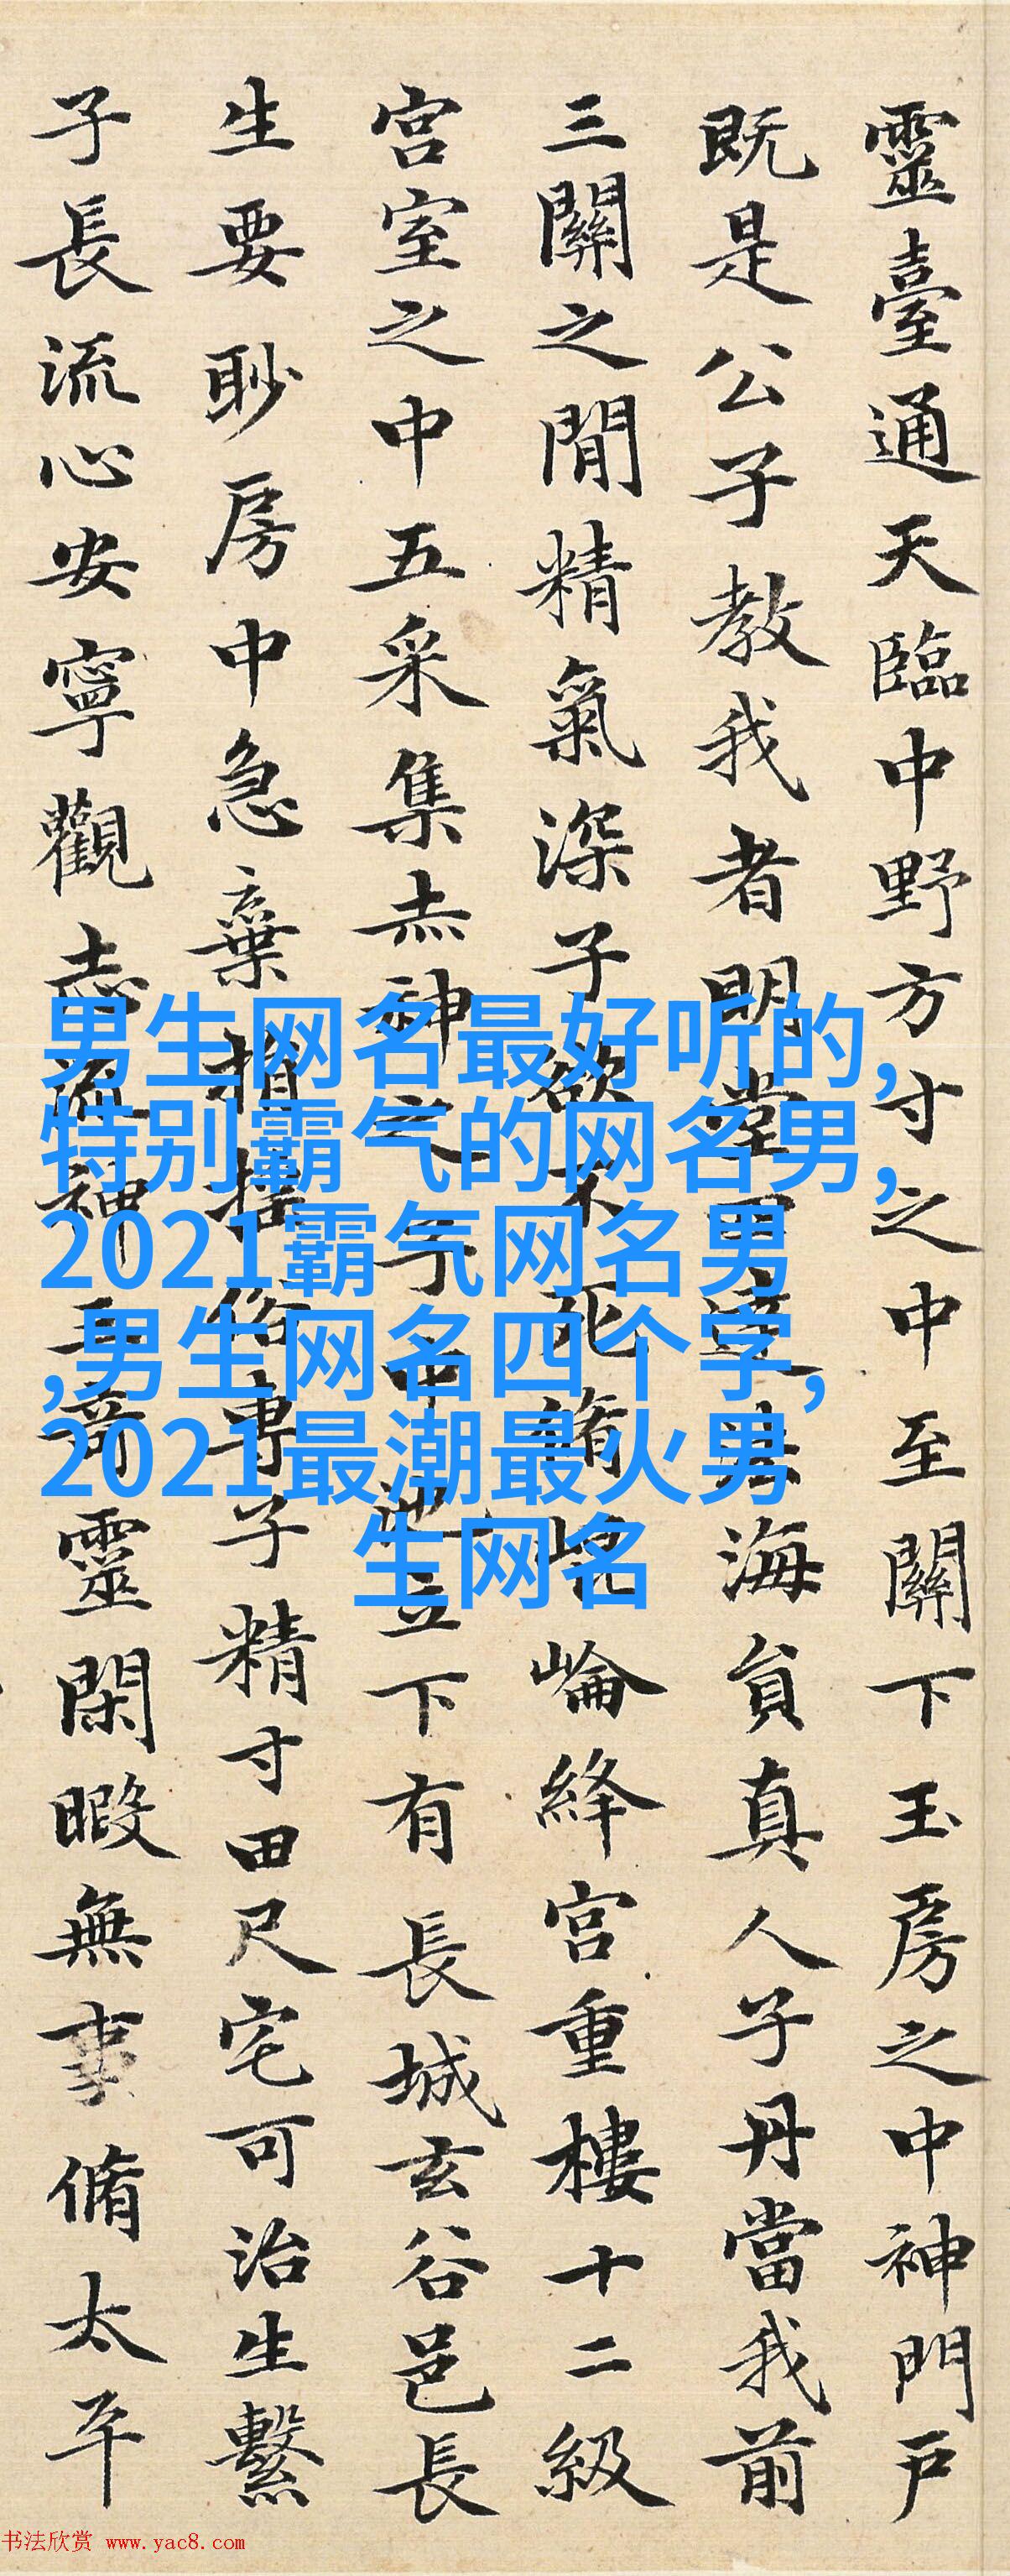 靈臺通天臨中野方寸之中至關下玉房之中神門戶
既是公子教我者明堂四達法海貟真人子丹當我前
三關之閒精氣深子欲不死脩崐崘絳宮重樓十二級
宮室之中五采集赤神之子中池立下有長城玄谷邑長
生要眇房中急棄捐搖俗專子精寸田尺宅可治生繫
子長流心安寧觀志流神三奇靈閑暇無事脩太平
男生网名最好听的,
特别霸气的网名男,
2021霸气网名男
,男生网名四个字,
2021最潮最火男
生网名
书法欣赏 www.yac8.com